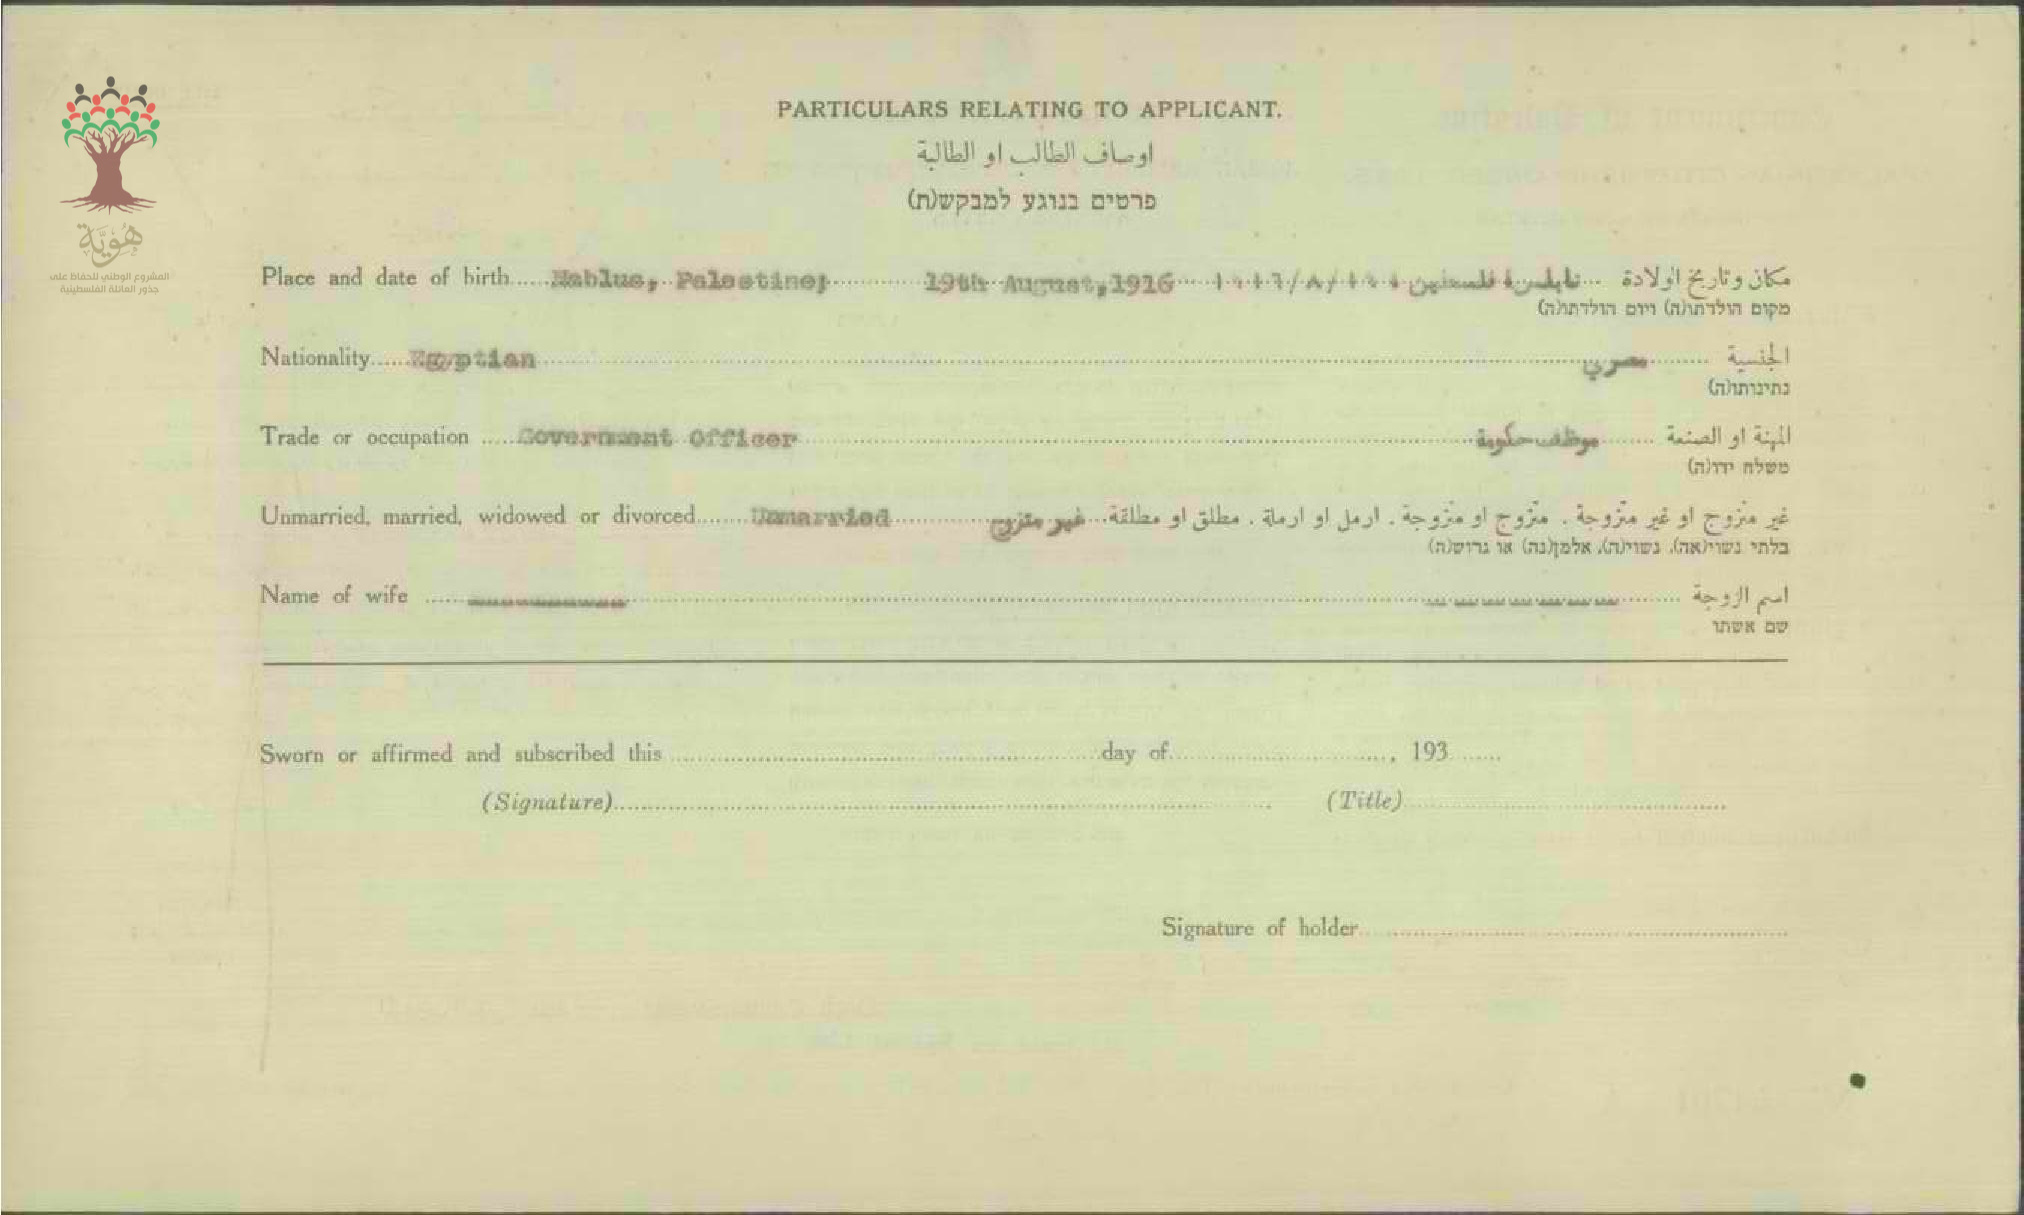 PARTICULARS RELATING TO APPLICANT.
اوصاف الطالب او الطالبة
פרטים בנוגע למבקש(ת)
هُوِيَّة
المشروع الوطني للحفاظ على
جذور العائلة الفلسطينية
Place and date of birth Nablus, Palestine; 19th August, 1916 نابلس، فلسطين مكان وتاريخ الولادة
מקום הולדתו(ה) ויום הולדתו(ה)
Nationality Egyptian مصري الجنسية
נתינותו(ה)
Trade or occupation Government Officer موظف حكومة المهنة او الصنعة
משלח ידו(ה)
Unmarried, married, widowed or divorced Unmarried غير متزوج غير متزوج او غير متزوجة . متزوج او متزوجة . ارمل او ارملة . مطلق او مطلقة
בלתי נשוי(אה), נשוי(ה), אלמן(נה) או גרוש(ה)
Name of wife اسم الزوجة
שם אשתו
Sworn or affirmed and subscribed this day of , 193
(Signature) (Title)
Signature of holder